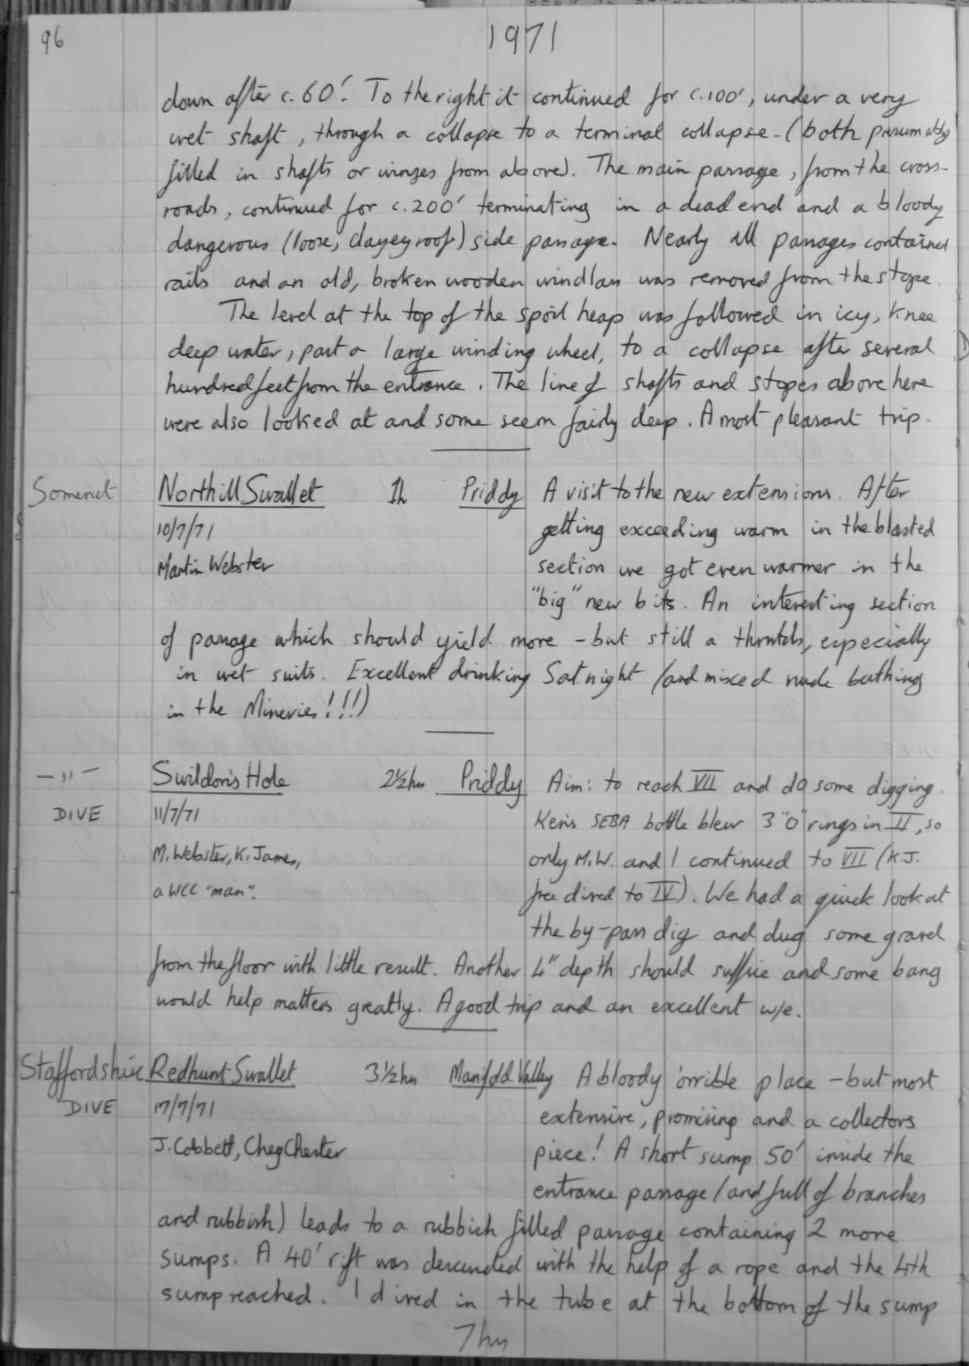 96
1971
down after c.60'. To the right it continued for c.100', under a very
wet shaft, through a collapse to a terminal collapse - (both presumably
filled in shafts or winzes from above). The main passage, from the cross-
roads, continued for c.200' terminating in a dead end and a bloody
dangerous (loose, clayey roof) side passage. Nearly all passages contained
rails and an old, broken wooden windlass was removed from the stope.
The level at the top of the spoil heap was followed in icy, knee
deep water, past a large winding wheel, to a collapse after several
hundred feet from the entrance. The line of shafts and stopes above here
were also looked at and some seem fairly deep. A most pleasant trip.
Somerset Northill Swallet 1h Priddy A visit to the new extensions. After
10/7/71 getting exceeding warm in the blasted
Martin Webster section we got even warmer in the
"big" new bits. An interesting section
of passage which should yield more - but still a thrutch, especially
in wet suits. Excellent drinking Sat night (and mixed nude bathing
in the Mineries!!!)
-"- Swildon's Hole 2½hrs Priddy Aim: to reach VII and do some digging.
DIVE 11/7/71 Ken's SEBA bottle blew 3 "O" rings in II, so
M. Webster, K. James, only M.W. and I continued to VII (K.J.
a WCC "man". free dived to IV). We had a quick look at
the by-pass dig and dug some gravel
from the floor with little result. Another 4" depth should suffice and some bang
would help matters greatly. A good trip and an excellent w/e.
Staffordshire Redhurst Swallet 3½hrs Manifold Valley A bloody 'orrible place - but most
DIVE 17/7/71 extensive, promising and a collectors
J. Cobbett, Cheg Chester piece! A short sump 50' inside the
entrance passage (and full of branches
and rubbish) leads to a rubbish filled passage containing 2 more
sumps. A 40' rift was descended with the help of a rope and the 4th
sump reached. I dived in the tube at the bottom of the sump
7hrs